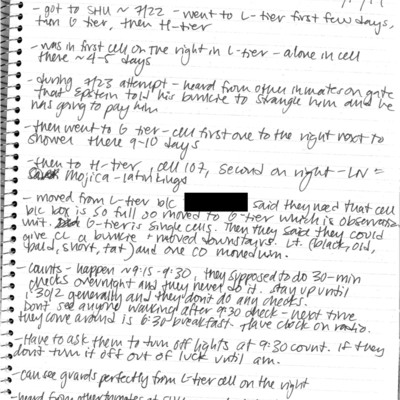 - got to SHU ~ 7/22 - went to L-tier first few days,
then G tier, then H-tier
- was in first cell on the right in L-tier - alone in cell
there ~4-5 days
- during 7/23 attempt - heard from other inmates on gate
that Epstein told his bunkie to strangle him and he
was going to pay him
- then went to G tier - cell first one to the right next to
shower there 9-10 days
- then to H-tier, cell 107, second on right - LN =
Mojica - latin kings
- moved from L-tier b/c said they need that cell
b/c box is so full so moved to G-tier which is observation
unit. G-tier is single cells. Then they said they could
give CL a bunkie + moved downstairs. Lt. (black, old,
bald, short, fat) and one CO moved him.
- counts - happen ~9:15-9:30, they supposed to do 30-min
checks overnight and they never do it. stay up until
1:30/2 generally and they don't do any checks.
Don't see anyone walking after 9:30 check - next time
they come around is 6:30 breakfast. Have clock on radio.
- Have to ask them to turn off lights at 9:30 count. if they
don't turn it off out of luck until am.
- can see guards perfectly from L-tier cell on the right
- heard from other inmates at SHU